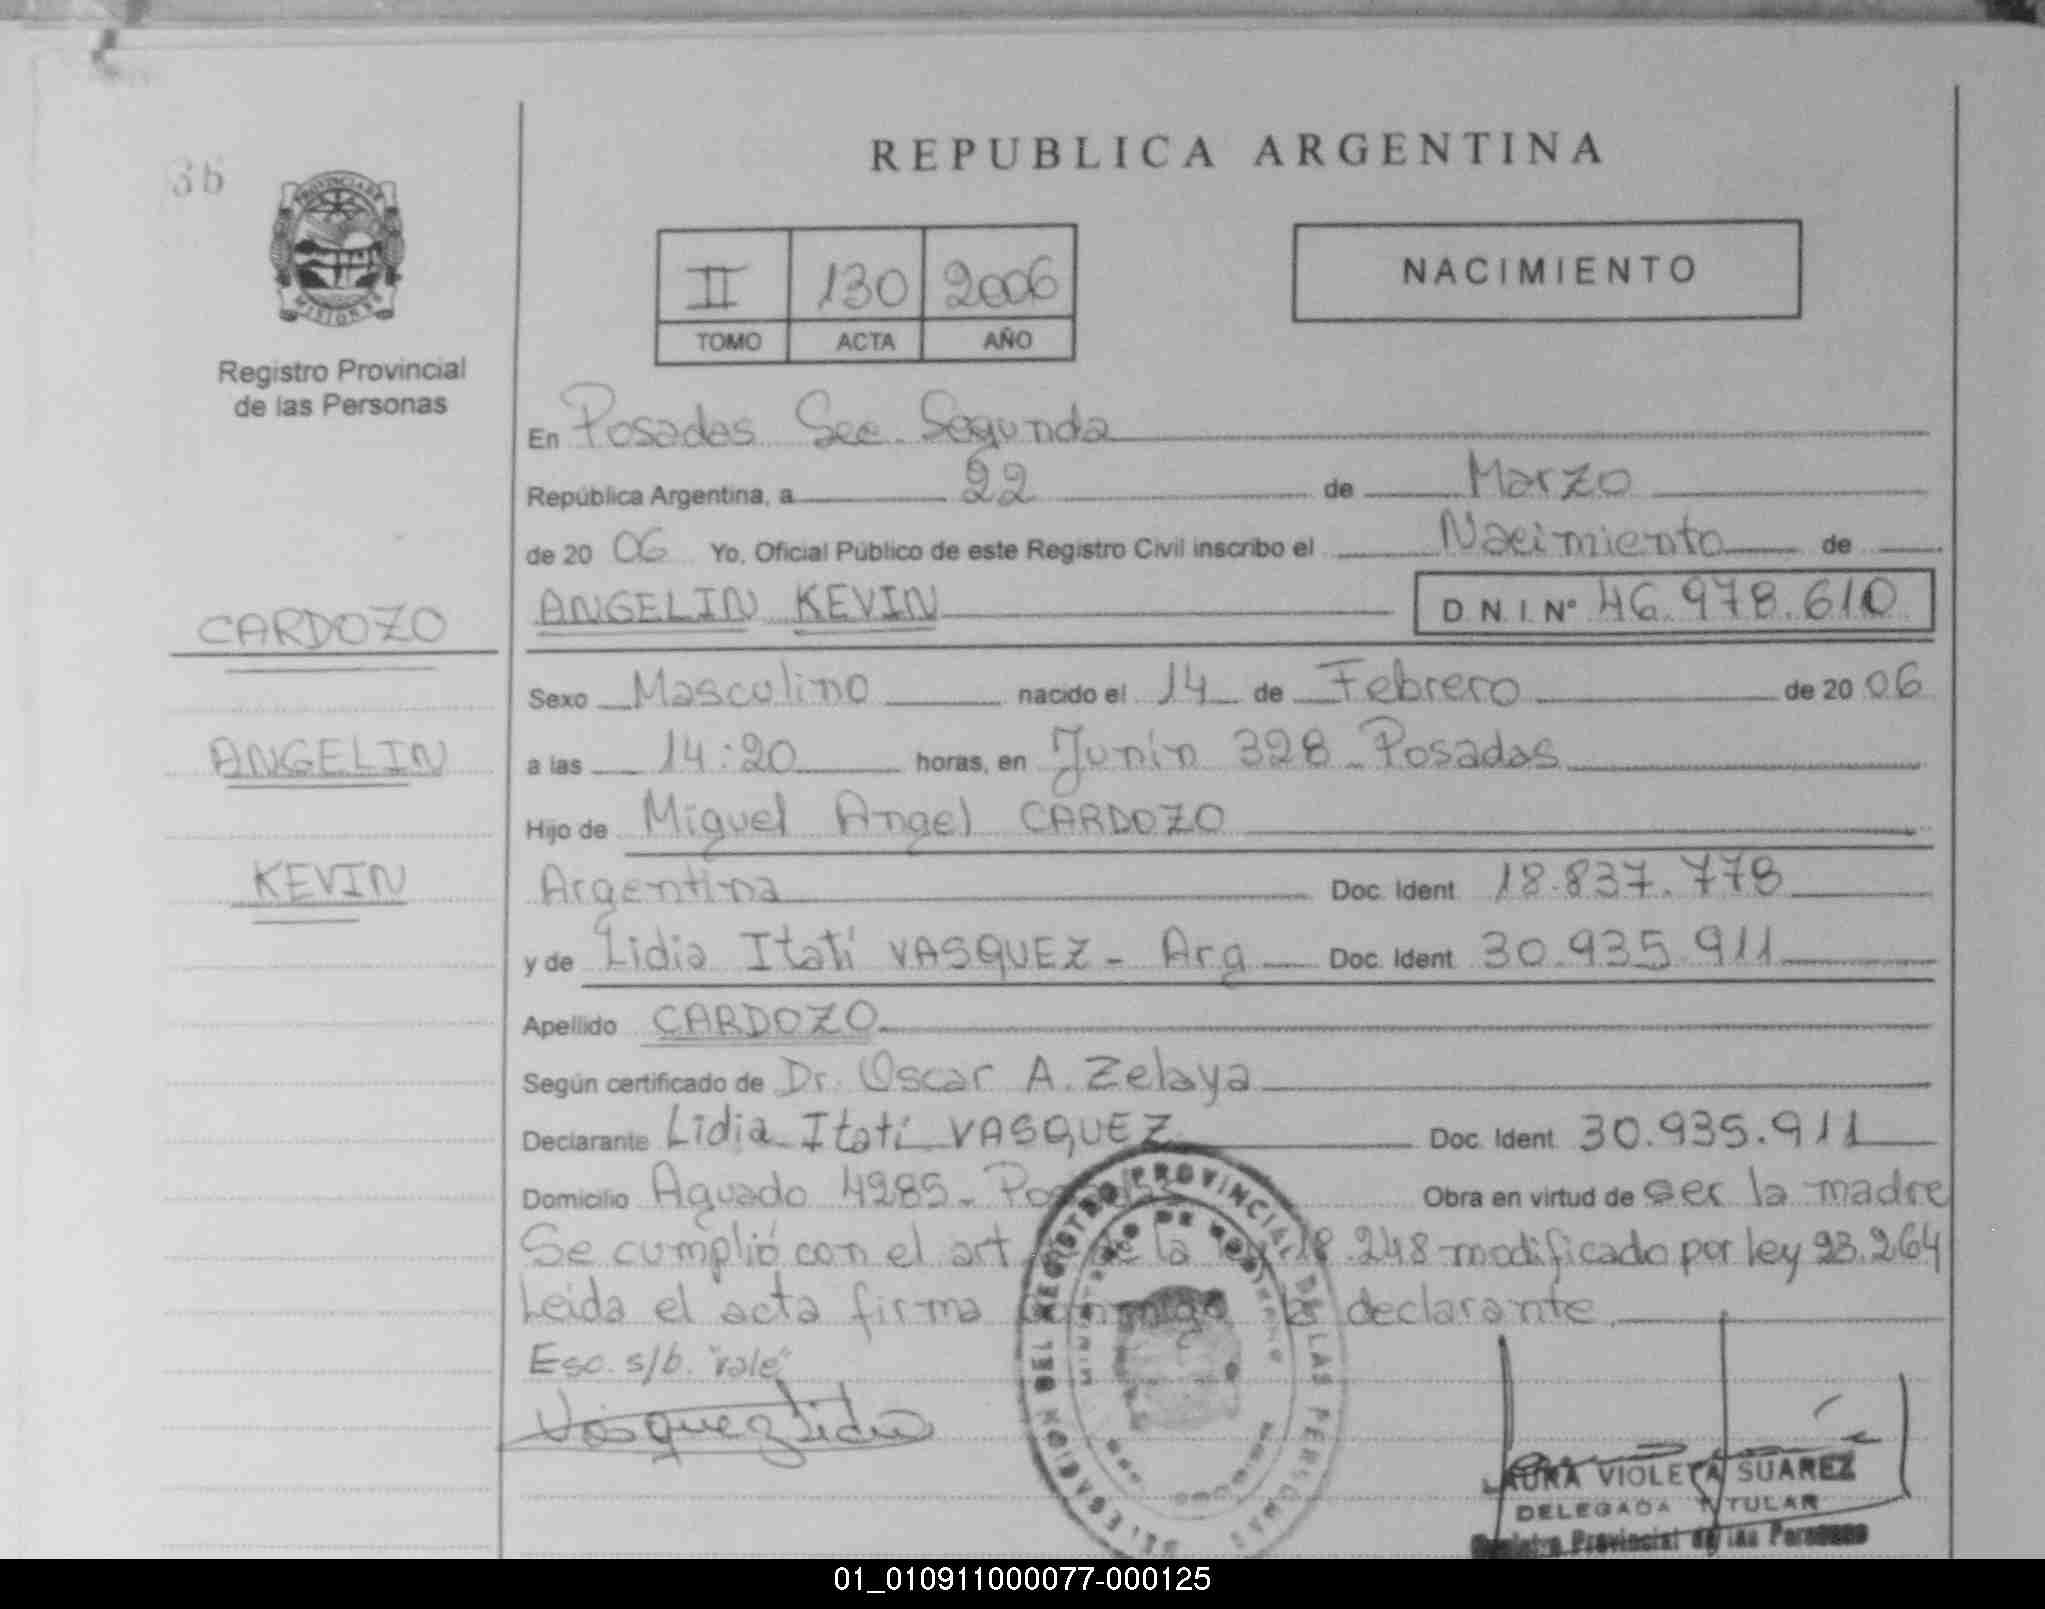 36
REPUBLICA ARGENTINA
PROVINCIA DE
MISIONES
Registro Provincial
de las Personas
II 130 2006
TOMO ACTA AÑO
NACIMIENTO
En Posadas Sec. Segunda
República Argentina, a 22 de Marzo
de 20 06 Yo, Oficial Público de este Registro Civil inscribo el Nacimiento de
CARDOZO
ANGELIN KEVIN D.N.I. Nº 46.978.610
Sexo Masculino nacido el 14 de Febrero de 20 06
ANGELIN
a las 14:20 horas, en Junín 328 Posadas
Hijo de Miguel Angel CARDOZO
KEVIN
Argentina Doc. Ident. 18.837.778
y de Lidia Itatí VASQUEZ - Arg Doc. Ident. 30.935.911
Apellido CARDOZO
Según certificado de Dr. Oscar A. Zelaya
Declarante Lidia Itatí VASQUEZ Doc. Ident. 30.935.911
Domicilio Aguado 4285 - Obra en virtud de ser la madre
Se cumplió con el art de la ley 18.248 modificado por ley 23.264
Leída el acta firma conmigo la declarante.
Esc. s/b. "vale"
Vasquez Lidia
DEL REGISTRO PROVINCIAL DE LAS PERSONAS
MINISTERIO DE GOBIERNO
LAURA VIOLETA SUAREZ
DELEGADA TITULAR
Registro Provincial de las Personas
01_010911000077-000125